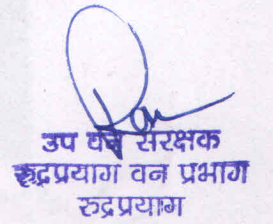 उप वन संरक्षक
रूद्रप्रयाग वन प्रभाग
रुद्रप्रयाग